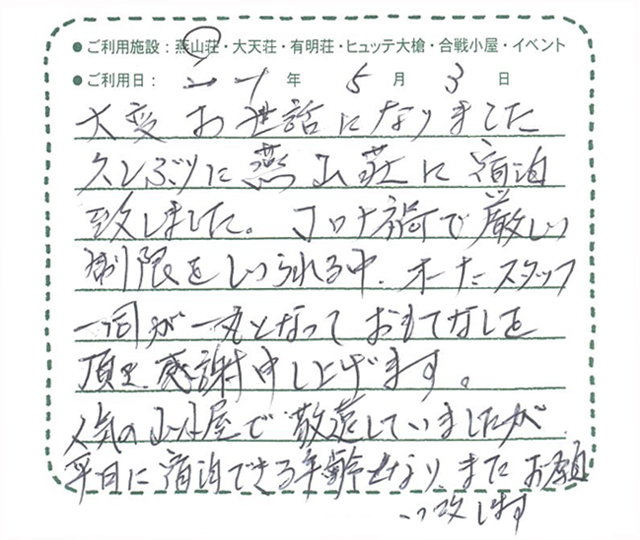 ● ご利用施設：燕山荘・大天荘・有明荘・ヒュッテ大槍・合戦小屋・イベント
● ご利用日： 年 5 月 3 日
大変お世話になりました
久しぶりに燕山荘に宿泊
致しました。コロナ禍で厳しい
制限をしいられる中、オーナースタッフ
一同が一丸となっておもてなしを
頂き、感謝申し上げます。
人気の山小屋で敬遠していましたが
平日に宿泊できる年齢となり、またお願
い致します